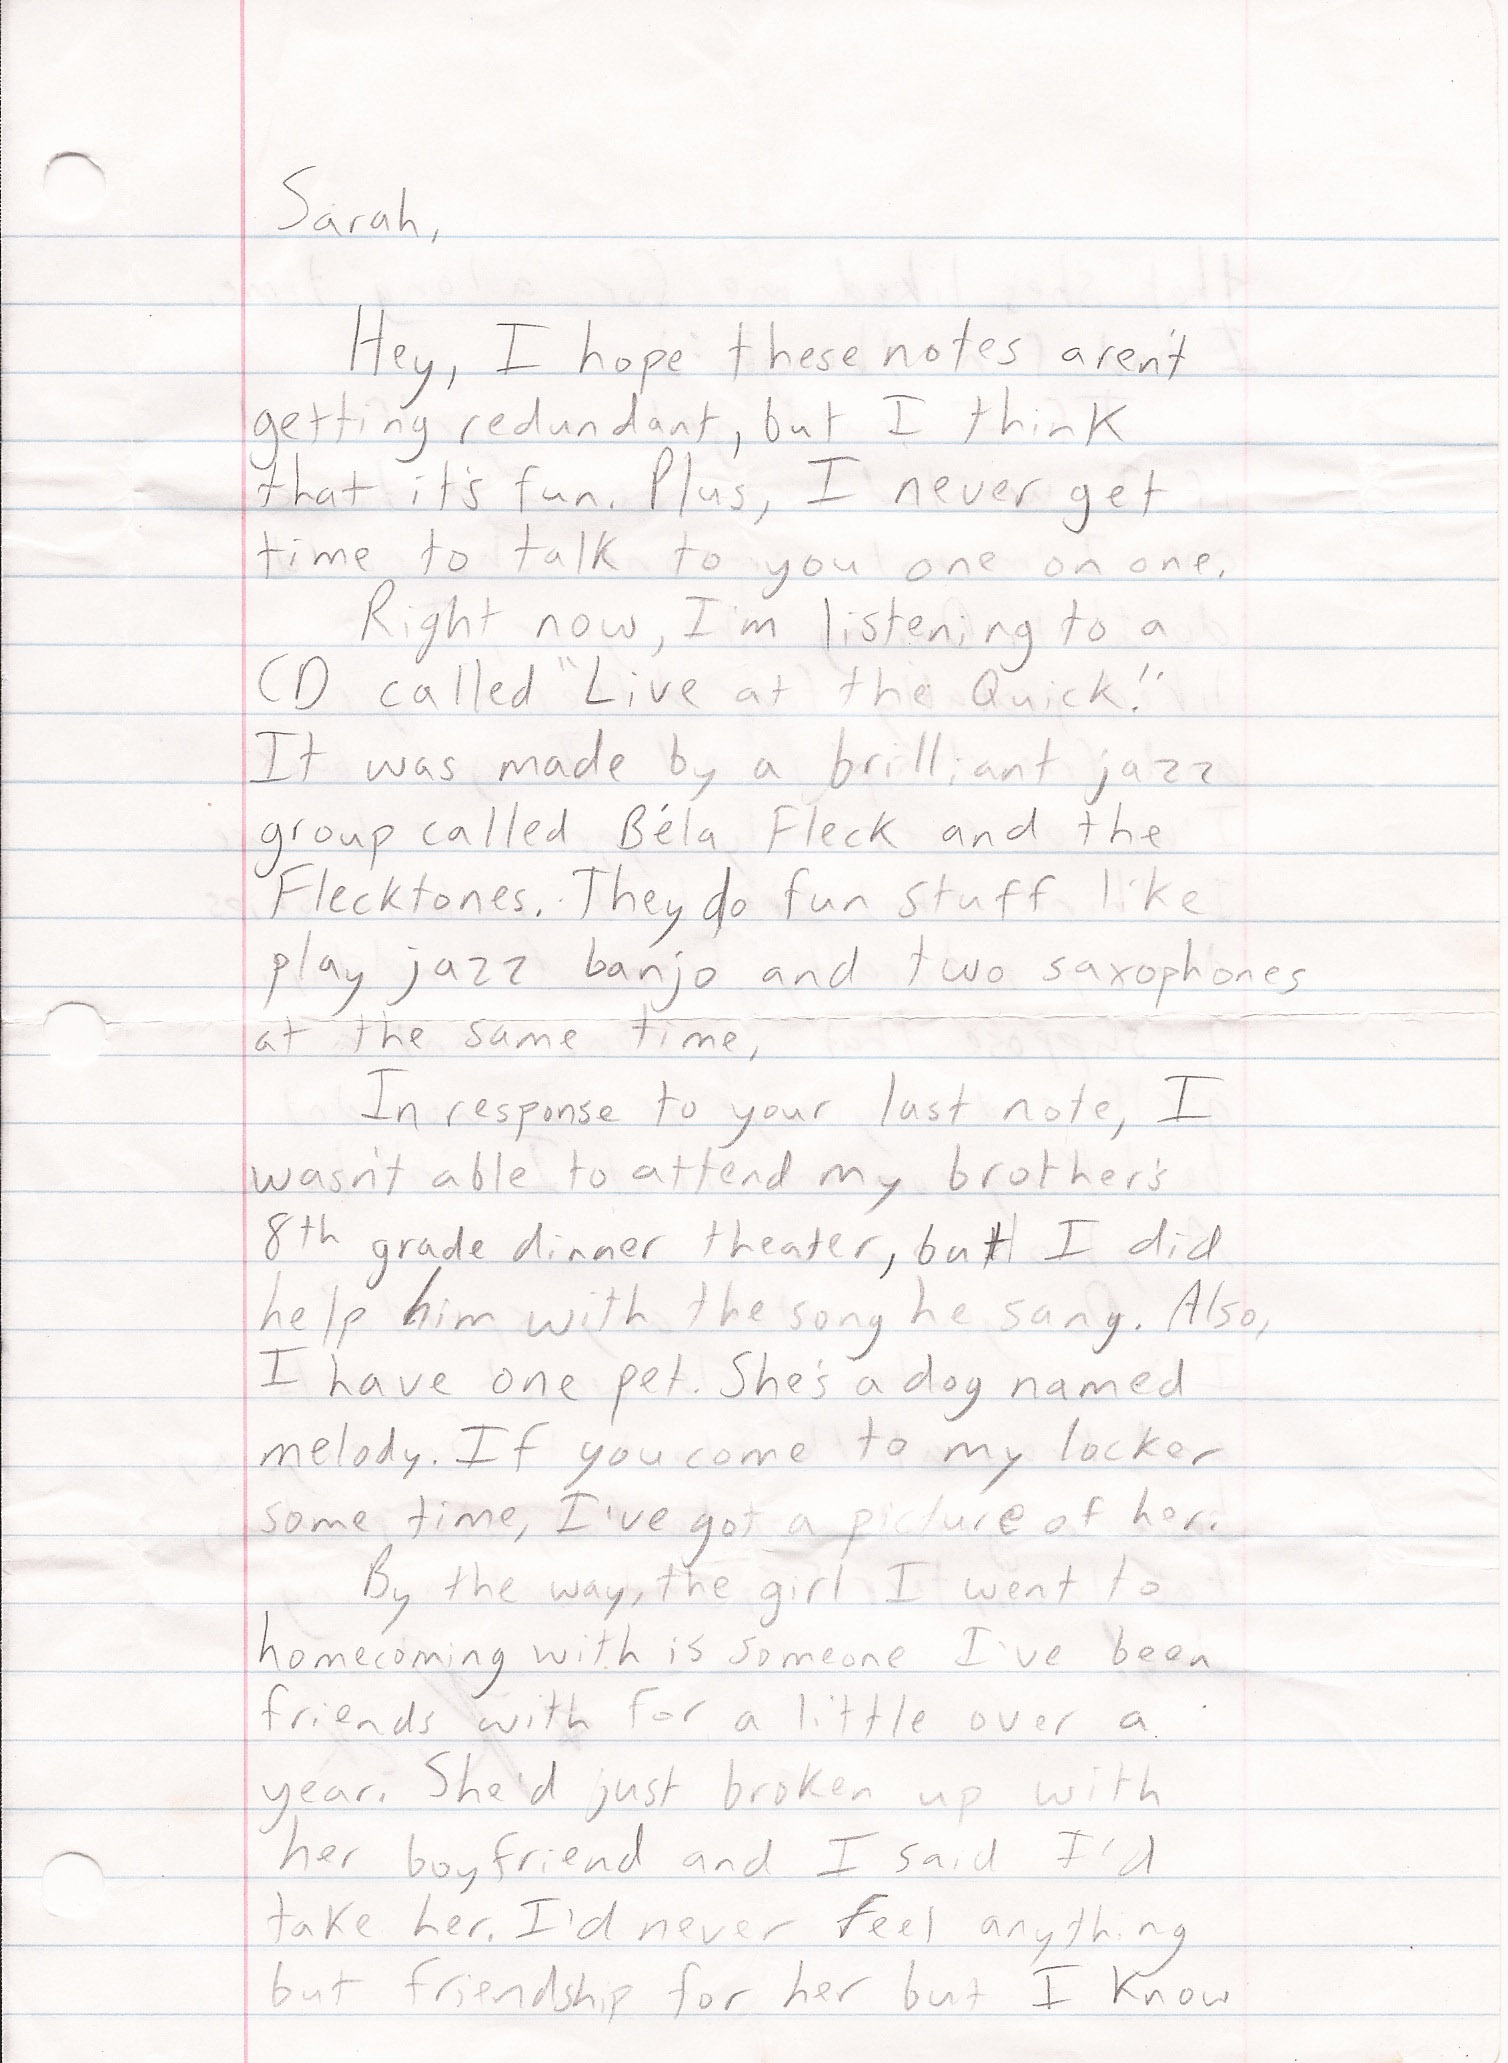 Sarah,
Hey, I hope these notes aren't
getting redundant, but I think
that it's fun. Plus, I never get
time to talk to you one on one.
Right now, I'm listening to a
CD called "Live at the Quick."
It was made by a brilliant jazz
group called Béla Fleck and the
Flecktones. They do fun stuff like
play jazz banjo and two saxophones
at the same time.
In response to your last note, I
wasn't able to attend my brother's
8th grade dinner theater, but I did
help him with the song he sang. Also,
I have one pet. She's a dog named
melody. If you come to my locker
some time, I've got a picture of her.
By the way, the girl I went to
homecoming with is someone I've been
friends with for a little over a
year. She'd just broken up with
her boyfriend and I said I'd
take her. I'd never feel anything
but friendship for her but I know